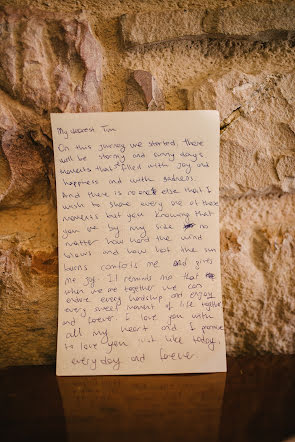 My dearest Tim
On this journey we started, there
will be stormy and sunny days
moments that filled with joy and
happiness and with sadness.
And there is no one else that I
wish to share every one of these
moments but you knowing that
you are by my side no
matter how hard the wind
blows and how hot the sun
burns comforts me and gives
me joy. It reminds me that
when we are together we can
endure every hardship and enjoy
every sweet moment of life together
and forever. I love you with
all my heart and I promise
to love you just like today,
everyday and forever.